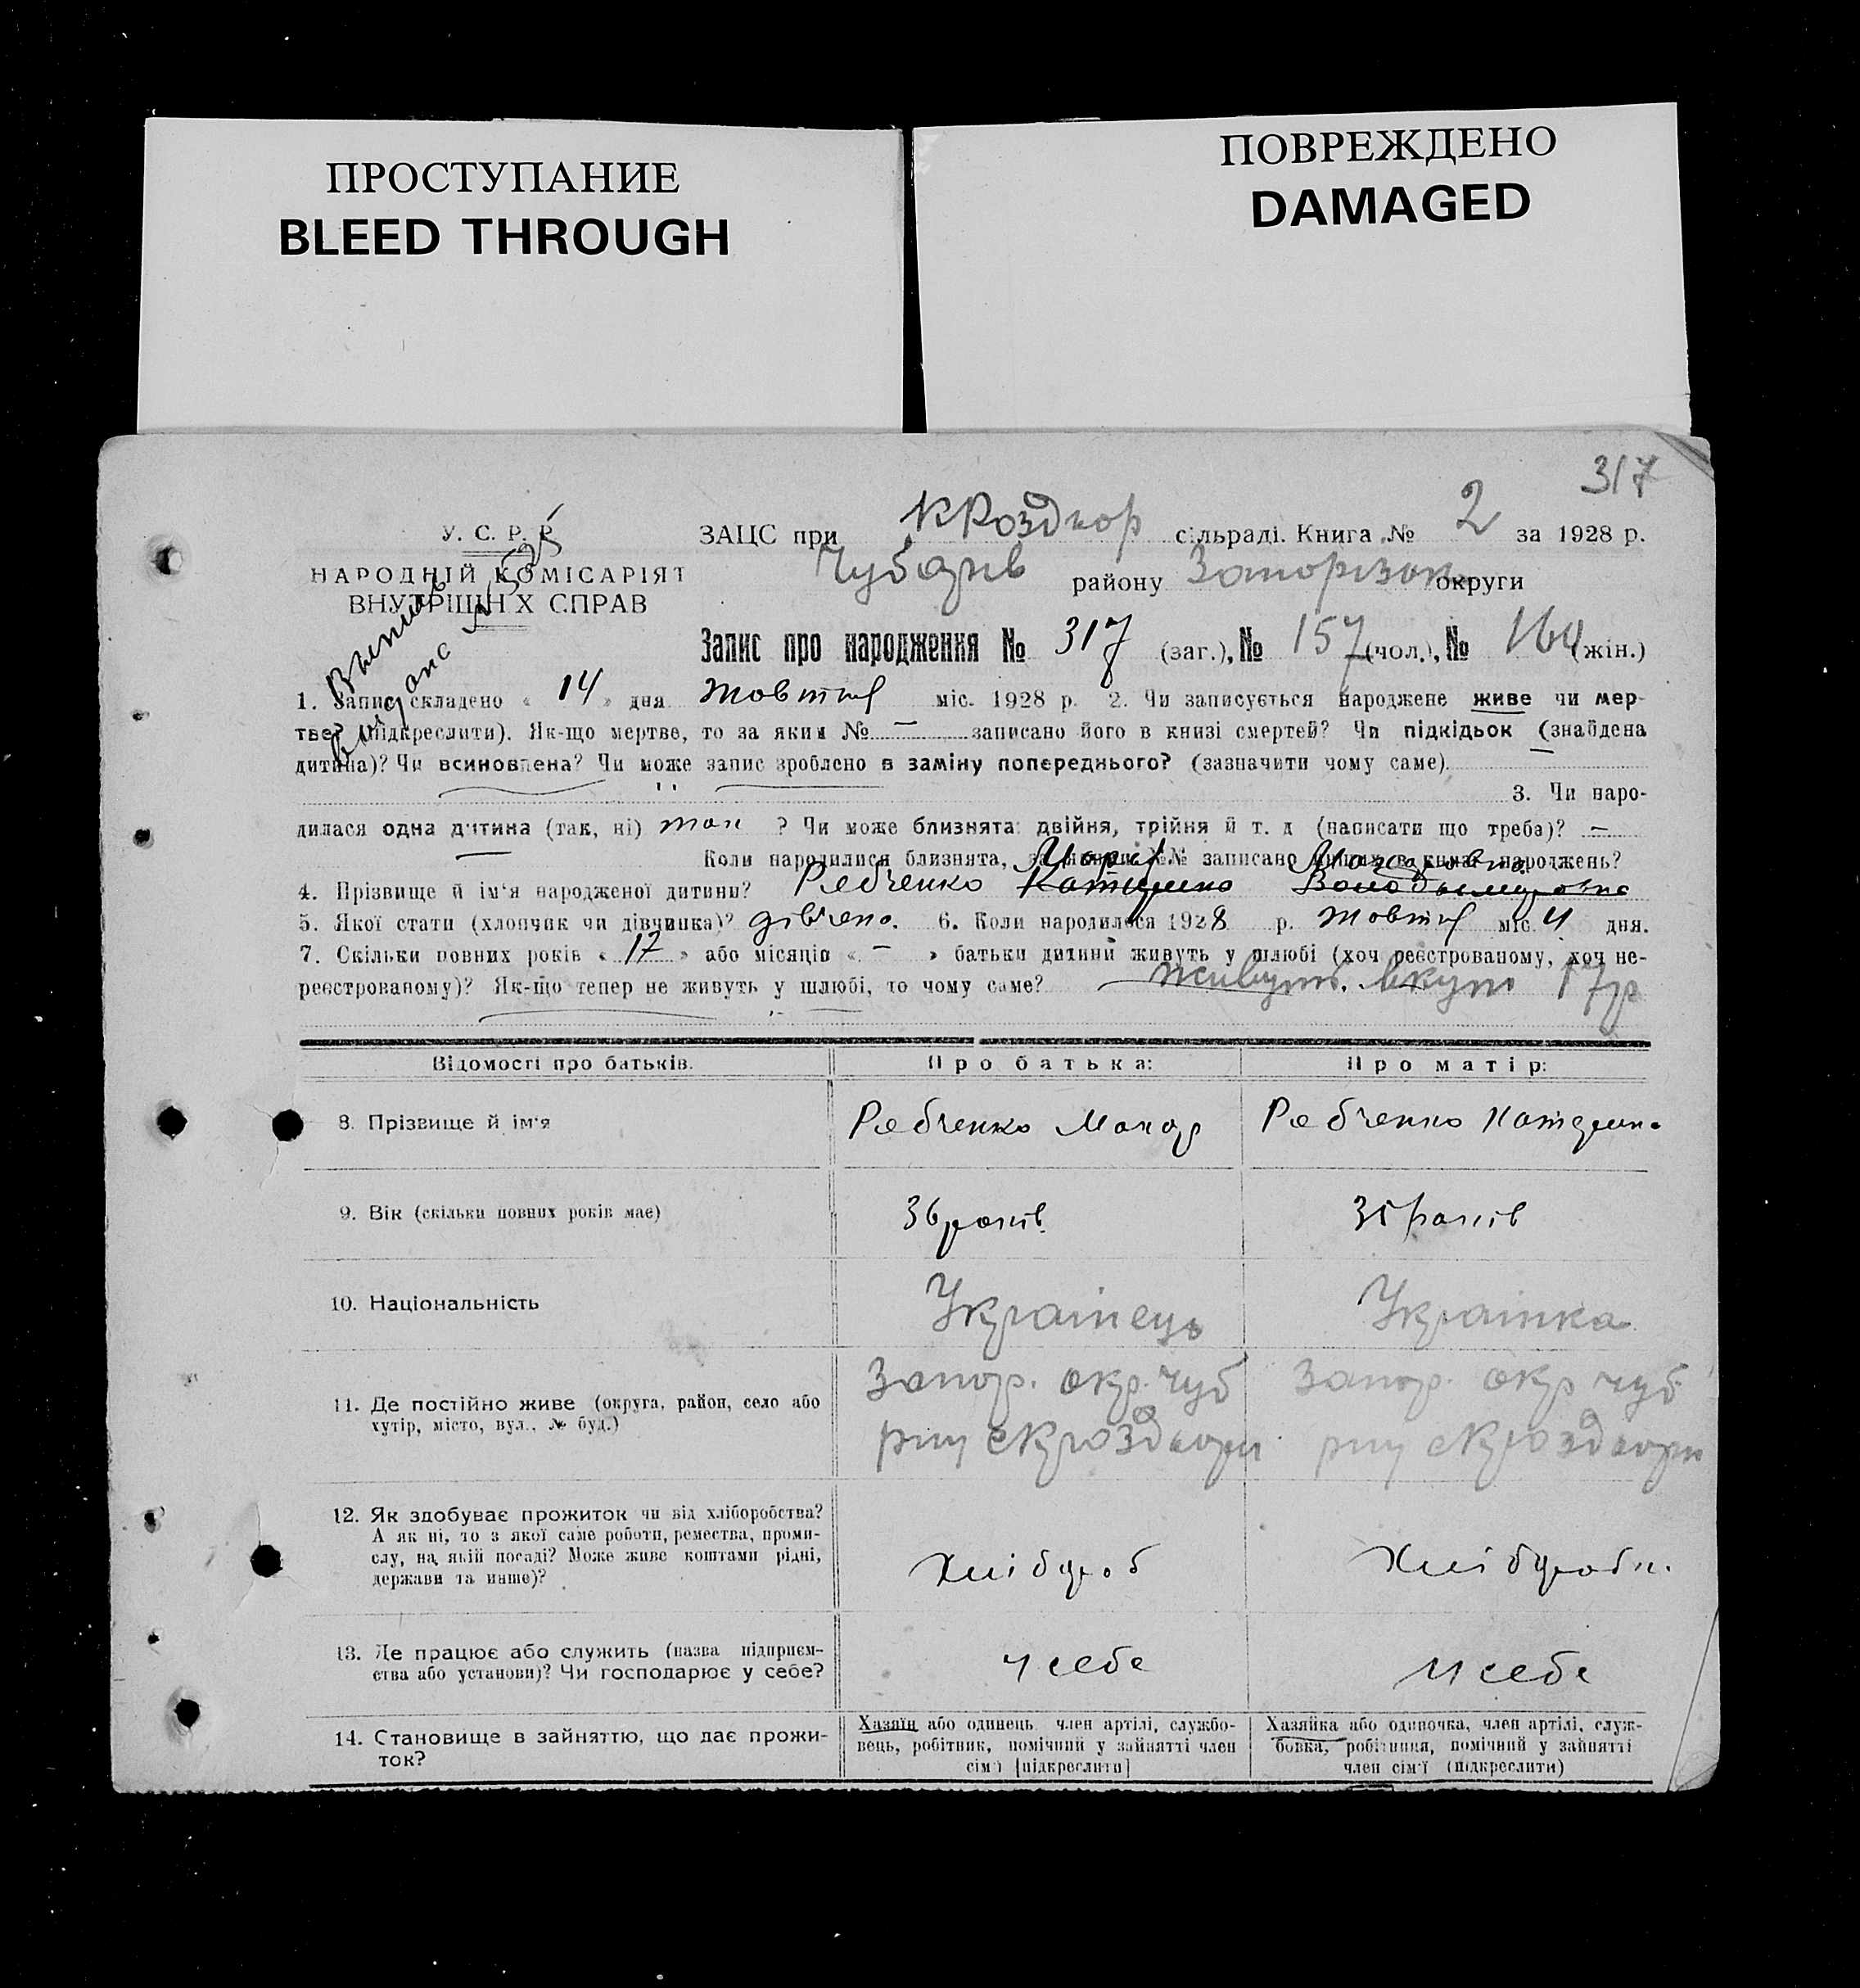 ПРОСТУПАНИЕ
BLEED THROUGH
ПОВРЕЖДЕНО
DAMAGED
317
У. С. Р. Р.
НАРОДНІЙ КОМІСАРІЯТ
ВНУТРІШН Х СПРАВ
ЗАЦС при КРоздкор сільраді. Книга № 2 за 1928 р.
Чубарів району Запорізок округи
Запис про народження № 317 (заг.), № 157 (чол.), № 160 (жін.)
1. Запис складено « 14 » дня жовтня міс. 1928 р. 2. Чи записується народжене живе чи мер-
тве? (підкреслити). Як-що мертве, то за яким № — записано його в книзі смертей? Чи підкідьок (знайдена
дитина)? Чи всиновлена? Чи може запис зроблено в заміну попереднього? (зазначити чому саме)
3. Чи наро-
дилася одна дитина (так, ні) так ? Чи може близнята: двійня, трійня й т. д (написати що треба)? —
Коли народилися близнята, за якими №№ записано инших в книзі народжень?
4. Прізвище й ім'я народженої дитини? Рябченко Катерина Володимировна
5. Якої стати (хлопчик чи дівчинка)? дівчена. 6. Коли народилася 1928 р. жовтня міс. 4 дня.
7. Скільки повних років « 17 » або місяців « — » батьки дитини живуть у шлюбі (хоч реєстрованому, хоч не-
реєстрованому)? Як-що тепер не живуть у шлюбі, то чому саме? живуть вкупі 17 р
Відомості про батьків.
Про батька:
Про матір:
8. Прізвище й ім'я
Рябченко Макар
Рябченко Катерина
9. Вік (скільки повних років має)
36 років
35 років
10. Національність
Українець
Українка
11. Де постійно живе (округа, район, село або
хутір, місто, вул., № буд.)
Запор. окр. Чуб
рну сКроздкори
Запор. окр Чуб
рну сКроздкори
12. Як здобуває прожиток чи від хліборобства?
А як ні, то з якої саме роботи, ремества, проми-
слу, на якій посаді? Може живе коштами рідні,
держави та инше)?
Хлібороб
Хліборобк.
13. Де працює або служить (назва підприєм-
ства або установи)? Чи господарює у себе?
У себе
У себе
14. Становище в зайняттю, що дає прожи-
ток?
Хазяїн або одинець член артілі, службо-
вець, робітник, помічний у зайнятті член
сім'ї [підкреслити]
Хазяйка або одиночка, член артілі, служ-
бовка, робітниця, помічний у зайнятті
член сім'ї (підкреслити)